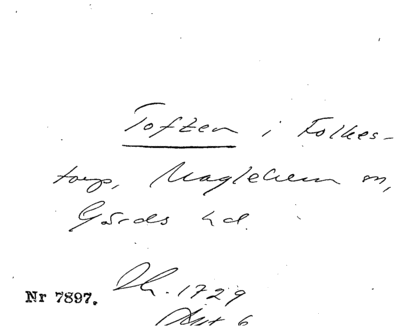 Toften i Folkes-
torp, Maglehem sn,
Gärds hd.
Nr 7897. Lh. 1729
Akt 6